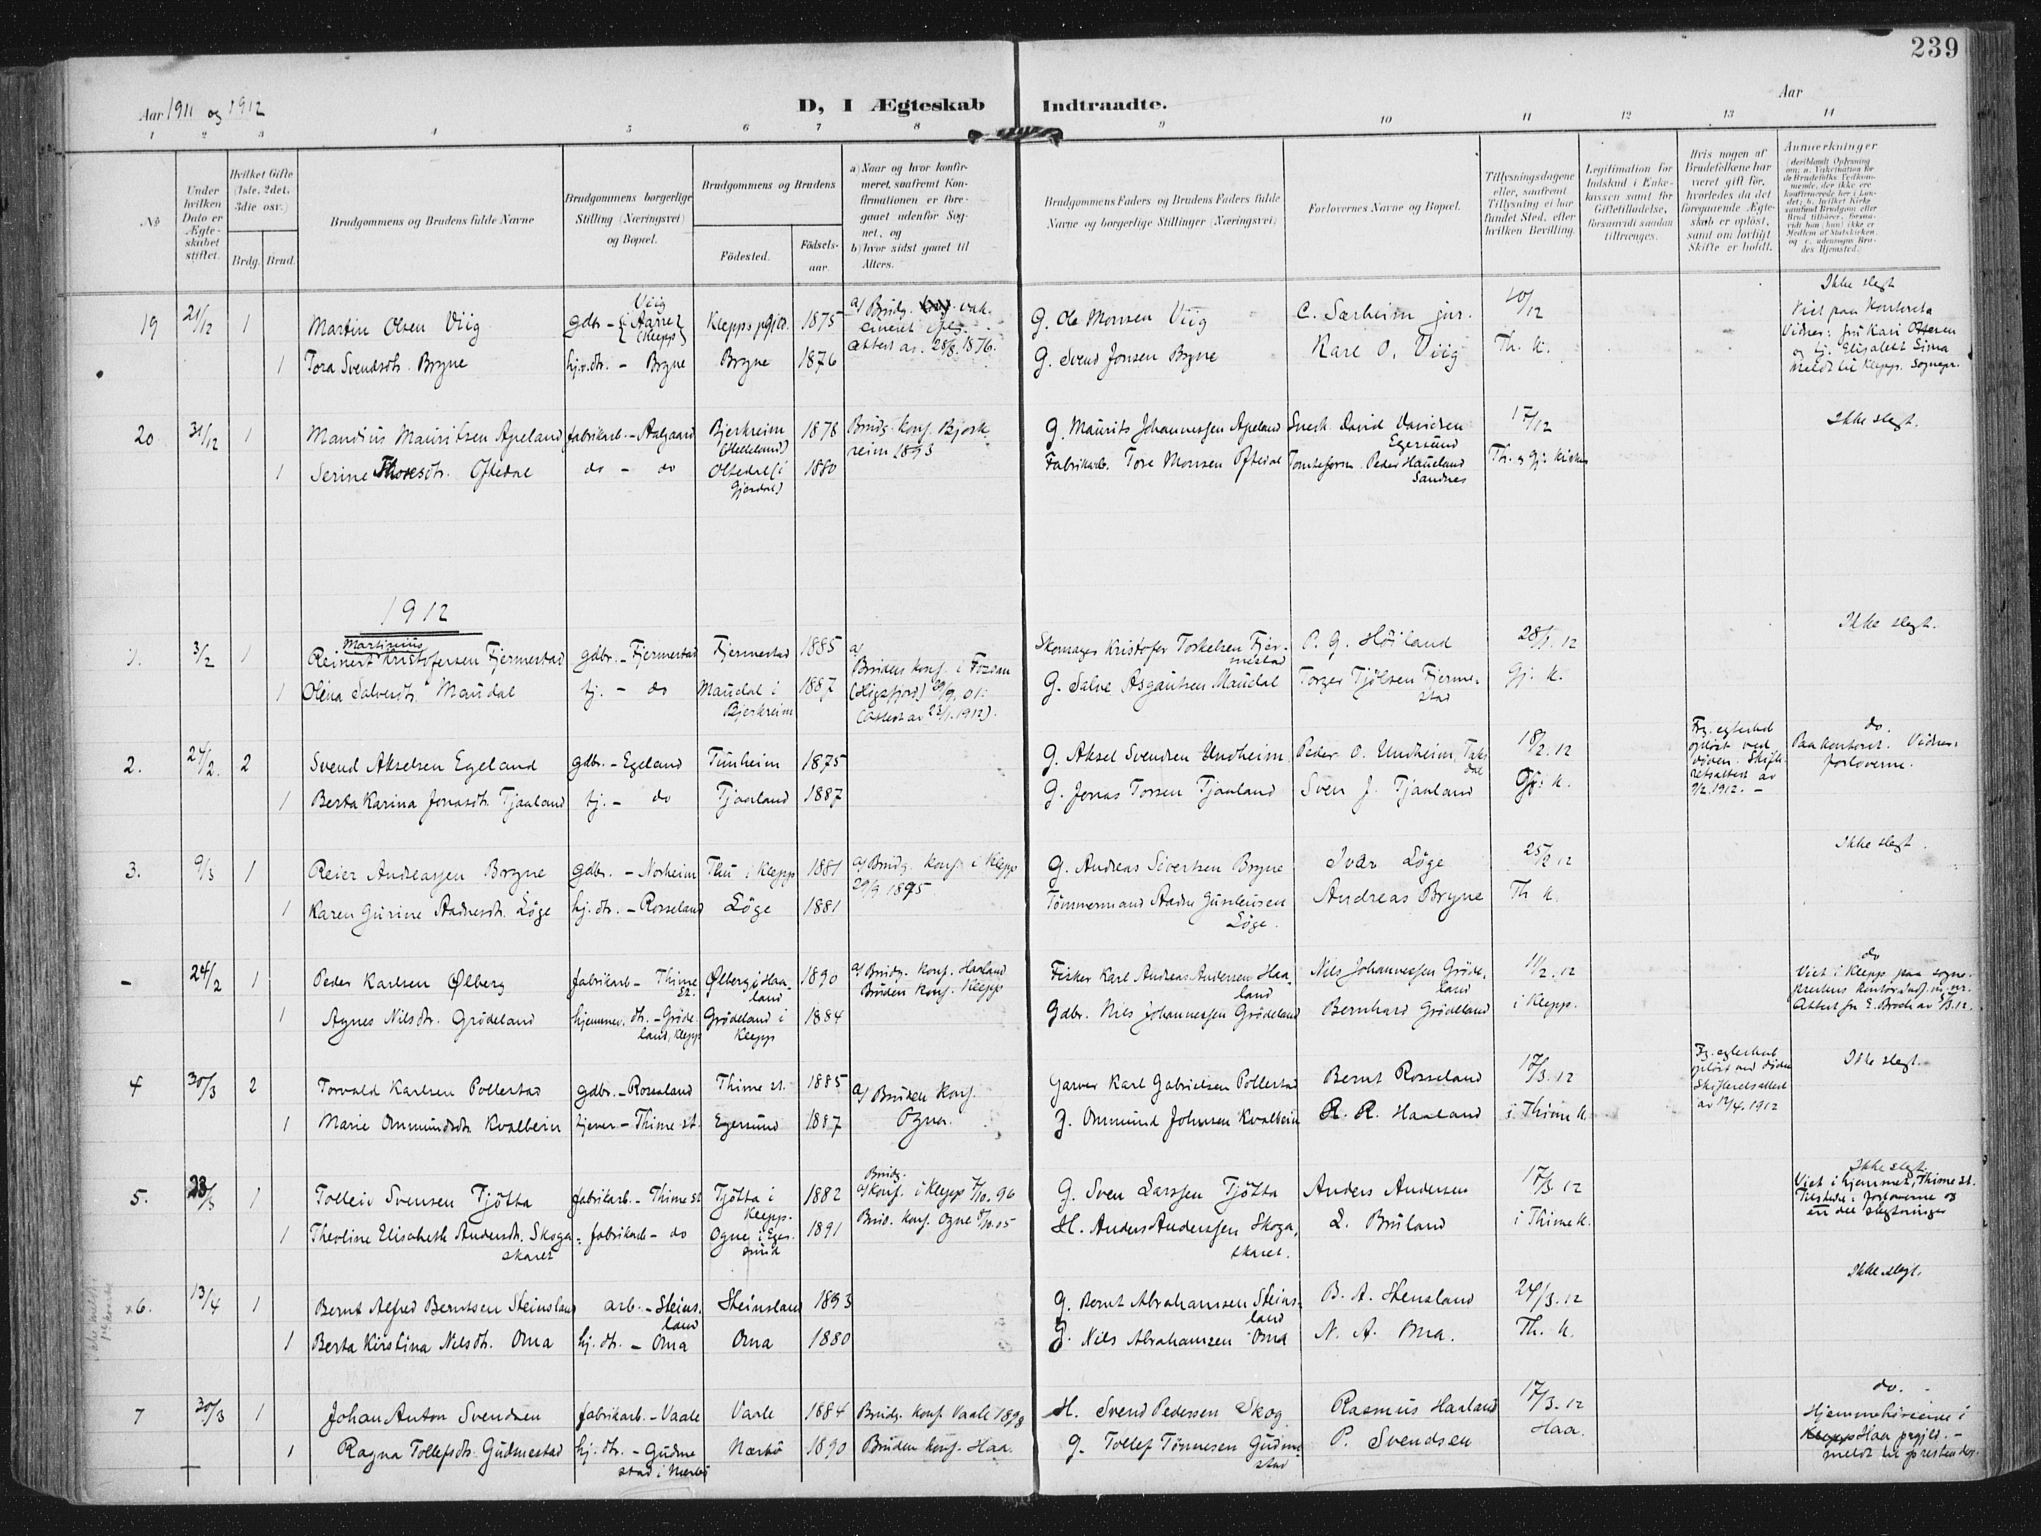 239
Aar 1911 og 1912
D, I Ægteskab Indtraadte.
Aar
1 2 3 4 5 6 7 8 9 10 11 12 13 14
No.
Under hvilken Dato er Ægteskabet stiftet.
Hvilket Gifte (1ste, 2det, 3die osv.)
Brdg. Brud.
Brudgommens og Brudens fulde Navne
Brudgommens borgerlige Stilling (Næringsvei) og Bopæl.
Brudgommens og Brudens
Fødested.
Fødselsaar.
a) Naar og hvor konfirmeret, saafremt Konfirmationen er foregaaet udenfor Sognet, og
b) hvor sidst gaaet til Alters.
Brudgommens Faders og Brudens Faders fulde Navne og borgerlige Stillinger (Næringsvei)
Forlovernes Navne og Bopæl.
Tillysningsdagene eller, saafremt Tillysning ei har fundet Sted, efter hvilken Bevilling.
Legitimation for Indskud i Enkekassen samt for Giftetilladelse, forsaavidt saadan tiltrænges.
Hvis nogen af Brudefolkene har været gift før, hvorledes da det foregaaende Ægteskab er opløst, samt om lovligt Skifte er holdt.
Anmerkninger
19 21/12 1 Martin Olsen Viig gdbr. - Viig (Aarre) (Klepp) Klepps pgjld. 1875 a) Brudg. vakcineret attest av 28/8. 1876. G. Ole Monsen Viig C. Særheim jnr. 10/12 Ikke slegt
Viet paa Kontoret
1 Tora Svendsdtr. Bryne hj.v.dtr. - Bryne Bryne 1876 G. Svend Jonsen Bryne Karl O. Viig Th. K. og tj. Elisabet Sima
meldt til Klepp. Sognepr.
20 31/12 1 Mandius Mauritsen Apeland fabrikarb. - Aalgaard Bjerkreim (Helleland) 1878 Brudg. konf. Bjerkreim 1893 G. Maurits Johannessen Apeland Snedk. David Davidsen Egersund 17/12 Ikke slegt.
1 Serine Thoresdtr. Oftedal do - do Oltedal (i Gjesdal) 1880 Fabrikarb. Tore Monsen Oftedal Tomteform. Peder Haueland Sandnes Th. & Gj. kirker
1912
1. 3/2 1 Reinert Martinius Kristofersen Fjermestad gdbr. - Fjermestad Fjermestad 1885 a) Skomager Kristofer Torkelsen Fjermestad P. G. Höiland 28/1. 12 Ikke slegt.
1 Olena Salvesdtr. Maudal tj. - do Maudal i Bjerkreim 1887 Bruden konf. i Fossan (Høgsfjord) 29/9. 01. (Attest av 23/1. 1912). G. Salve Asgautsen Maudal Torger Tjölsen Fjermestad Gj. K.
2. 24/2. 2 Svend Akselsen Egeland gdbr. - Egeland Tunheim 1875 G. Aksel Svendsen Undheim Peder O. Undheim, Taksdal 18/2. 12 Frg. egteskab opløst ved døden. Skifteretsattest av 9/2. 1912. - do.
Paa kontoret. Vidner: forloverne.
1 Berta Karina Jonasdtr. Tjaaland tj. - do Tjaaland 1887 G. Jonas Torsen Tjaaland Sven J. Tjaaland Gj. K.
3. 9/3 1 Reier Andreassen Bryne gdbr. - Norheim Thu i Klepp 1881 a) Brudg. konf. i Klepp 29/9 1895 G. Andreas Sivertsen Bryne Ivar Löge 25/2 12 Ikke slegt.
1 Karen Gurine Aadnesdtr. Löge hj. dtr. - Rosseland Löge 1881 Tømmermand Aadne Gunleiksen Löge. Andreas Bryne Th K.
- 24/2 1 Peder Karlsen Ølberg fabrikarb - Thime St. Ølberg i Haaland 1890 a) Brudg. konf. Haaland
Bruden konf. Klepp Fisker Karl Andreas Andersen Haaland Nils Johannessen Grödeland 11/2. 12 do
Viet i Klepp paa sogneprestens kontor
1 Agnes Nilsdtr. Grödeland hjemmev. dtr. - Grödeland, Klepp Grödeland i Klepp 1884 Gdbr. Nils Johannessen Grödeland Bernhard Grödeland i Klepp.
4 30/3 2 Torvald Karlsen Pollestad gdbr. - Rosseland Thime st. 1885 a) Bruden konf. Ogna. Garver Karl Gabrielsen Pollestad Bernt Rosseland 17/3. 12 Frg. egteskab opløst ved døden Skifteretsattest av 12/4. 1912 Ikke slegt.
1 Marie Ommundsdtr. Kvalbein tjener - Thime st. Egersund 1887 G. Ommund Johnsen Kvalbein R. R. Haaland i Thime K.
5. 23/3 1 Tolleiv Svensen Tjötta fabrikarb. - Thime st Tjötta i Klepp. 1882 Brudg. a) konf. i Klepp 4/10. 96 G. Sven Larssen Tjötta Anders Andersen 17/3. 12 Ikke slegt.
Viet i hjemmet, Thime st.
Tilstede: forloverne og en del slegtninger
1 Theoline Elisabeth Andersdtr. Skogaskaret fabrikarb - do Ogne i Egersund 1891 Brud. konf. Ogne 8/10. 05 H. Anders Anderssen Skogaskaret. L. Bruland i Thime K.
x6. 13/4 1 Bernt Alfred Berntsen Steinsland arb. - Steinsland Steinsland 1893 G. Bernt Abrahamsen Steinsland B. A. Stensland 24/3. 12 Ikke slegt.
1 Berta Kirstina Nilsdtr. Oma hj. dtr. - Oma Oma 1880 G. Nils Abrahamsen Oma N. A. Oma. Th. K.
7 30/3 1 Johan Anton Svendsen fabrikarb. - Vaale Vaale 1884 Brudg. konf. Vaale 1898 H. Svend Pedersen Skog Rasmus Haaland 17/3. 12 do.
Hjemmehørende i Klepp Haa prgjld. - meldt til presten der.
1 Ragna Tollefsdtr. Gudmestad hj. dtr. - Gudmestad i Nærbö Nærbö 1890 Bruden konf. Haa. G. Tollef Tönnesen Gudmestad P. Svendsen Haa.